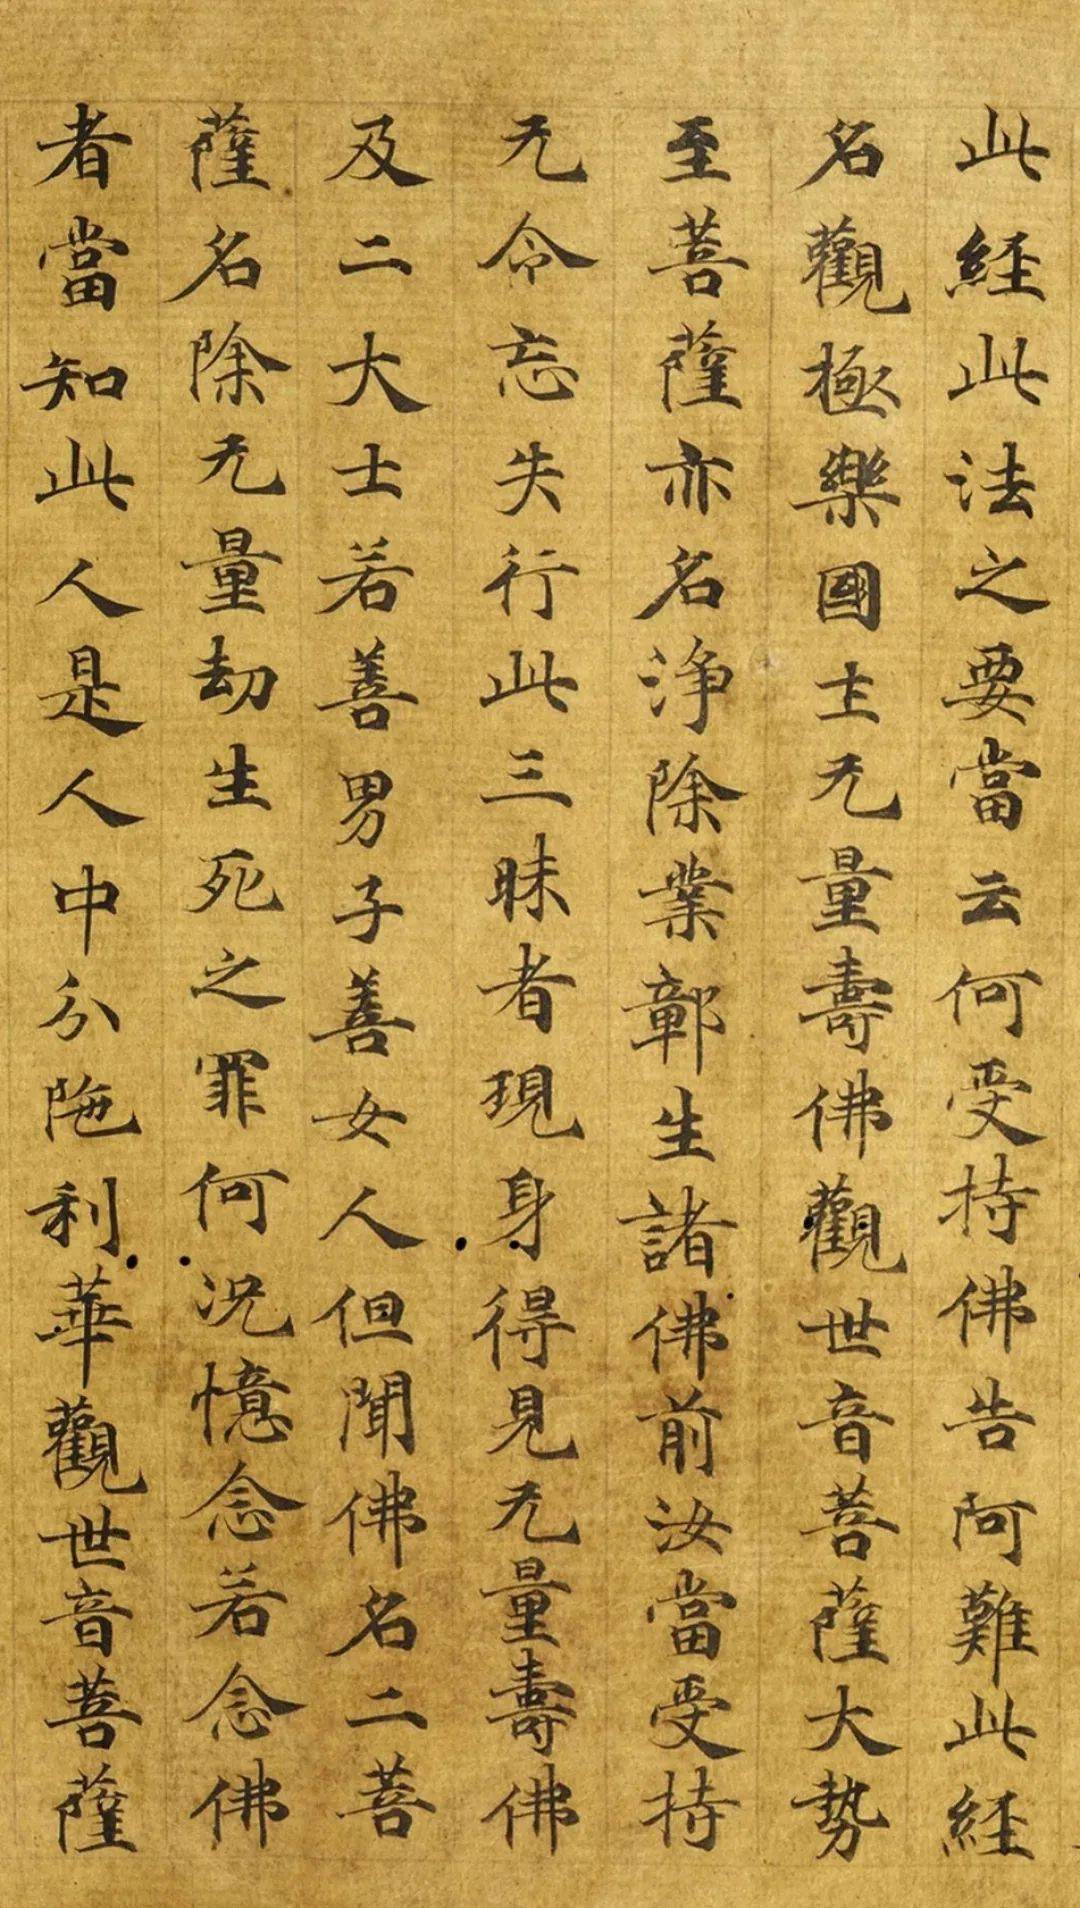 此経此法之要當云何受持佛告阿難此経
名觀極樂國主无量壽佛觀世音菩薩大勢
至菩薩亦名浄除業鄣生諸佛前汝當受持
无令忘失行此三昧者現身得見无量壽佛
及二大士若善男子善女人但聞佛名二菩
薩名除无量劫生死之罪何況憶念若念佛
者當知此人是人中分陁利華觀世音菩薩